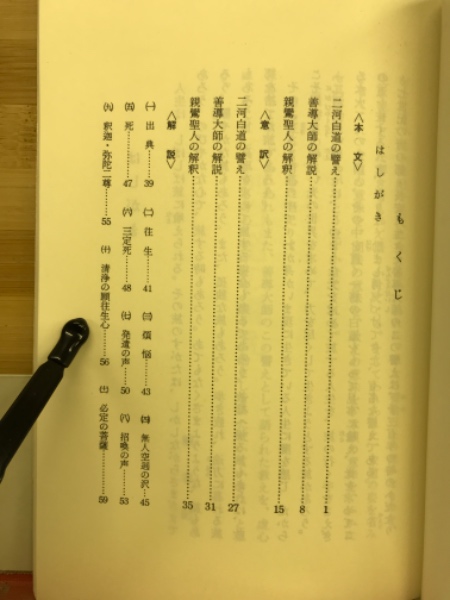 もくじ
はしがき
〈本文〉
二河白道の譬え……1
善導大師の解説……8
親鸞聖人の解釈……15
〈意訳〉
二河白道の譬え……27
善導大師の解説……31
親鸞聖人の解釈……35
〈解説〉
㈠ 出典……39 ㈡ 往生……41 ㈢ 煩悩……43 ㈣ 無人空迥の沢……45
㈤ 死……47 ㈥ 三定死……48 ㈦ 発遣の声……50 ㈧ 招喚の声……53
㈨ 釈迦・弥陀二尊……55 ㈩ 清浄の願往生心……56 (十一) 必定の菩薩……59